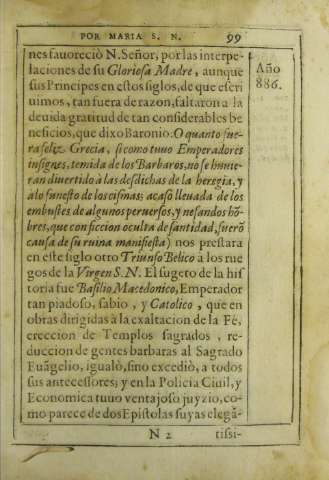 POR MARIA S. N. 99
nes fauoreciò N. Señor, por las interpe-
laciones de su Gloriosa Madre, aunque
sus Principes en estos siglos, de que escri
uimos, tan fuera de razon, faltaron a la
deuida gratitud de tan considerables be
neficios, que dixo Baronio: O quanto fue-
ra feliz Grecia, si como tuuo Emperadores
insignes, temida de los Barbaros, no se huuie-
ran diuertido à las desdichas de la heregia, y
a lo funesto de los cismas; acaso lleuada de los
embustes de algunos peruersos, y nefandos hõ-
bres, que con ficcion oculta de santidad, fuerõ
causa de su ruina manifiesta) nos prestara
en este siglo otro Triunfo Belico a los rue
gos de la Virgen S. N. El sugeto de la his
toria fue Basilio Macedonico, Emperador
tan piadoso, sabio, y Catolico, que en
obras dirigidas à la exaltacion de la Fè,
ereccion de Templos sagrados, re-
duccion de gentes barbaras al Sagrado
Euãgelio, igualò, sino excediò, a todos
sus antecessores; y en la Policia Ciuil, y
Economica tuuo ventajoso juyzio, co-
mo parece de dos Epistolas suyas elegã-
N 2 tissi-
Año
886.